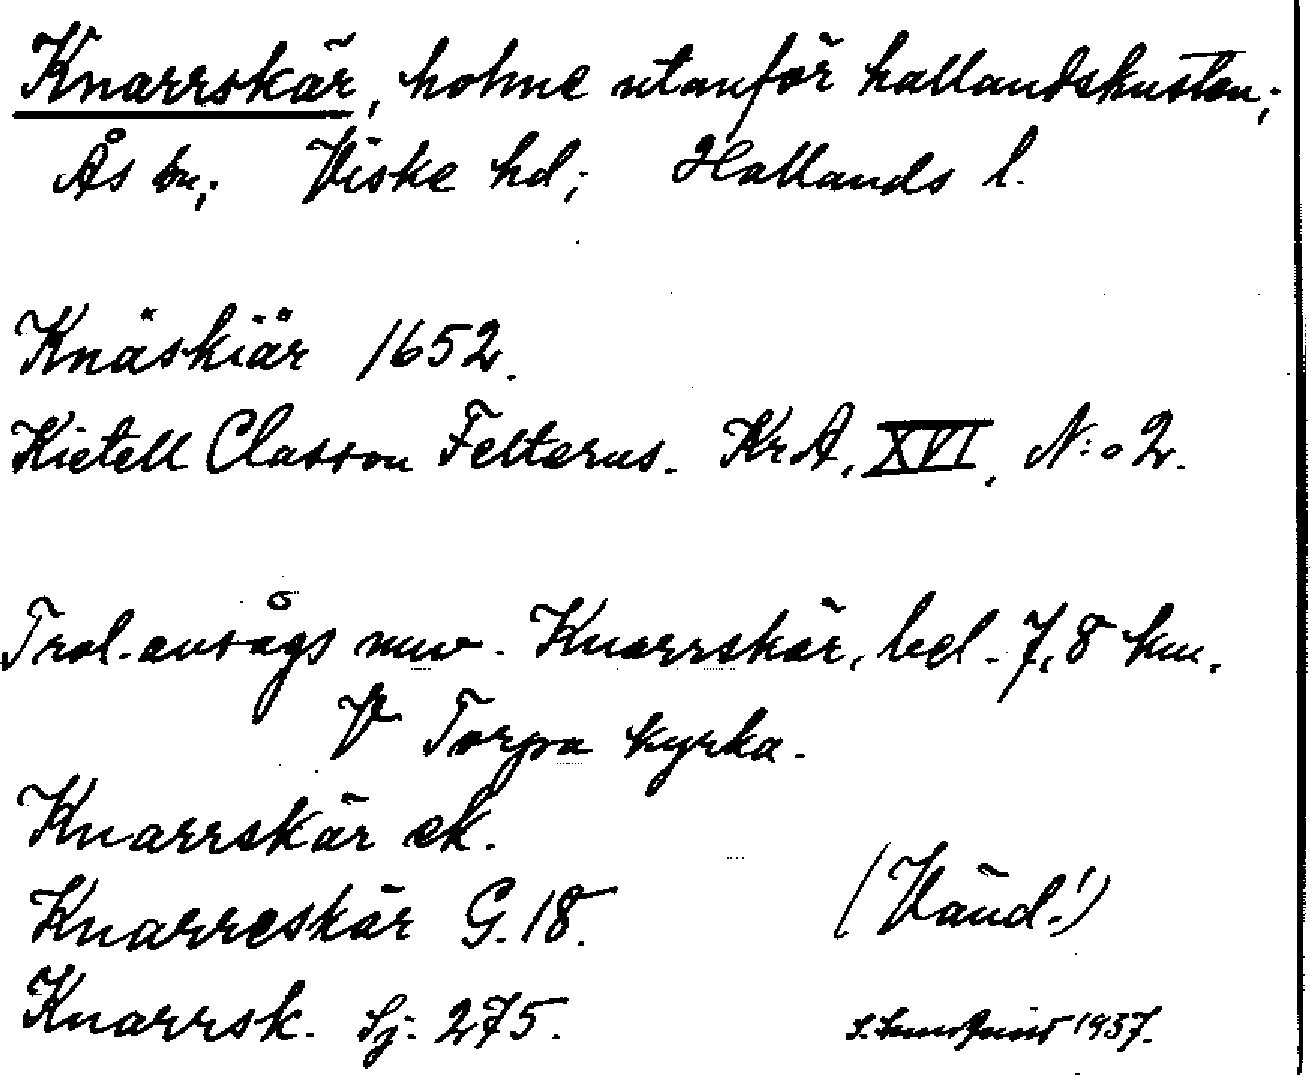 Knarrskär, holme utanför hallandskusten;
Ås sn; Viske hd; Hallands l.
Knäskiär 1652.
Kietell Classon Felterus. KrA, XVI, N:o 2.
Trol. avsågs nuv. Knarrskär, bel. 7,8 km.
V Torpa kyrka.
Knarrskär ek.
Knarreskär G. 18.
(Vänd!)
Knarrsk. Sj: 275.
1937.